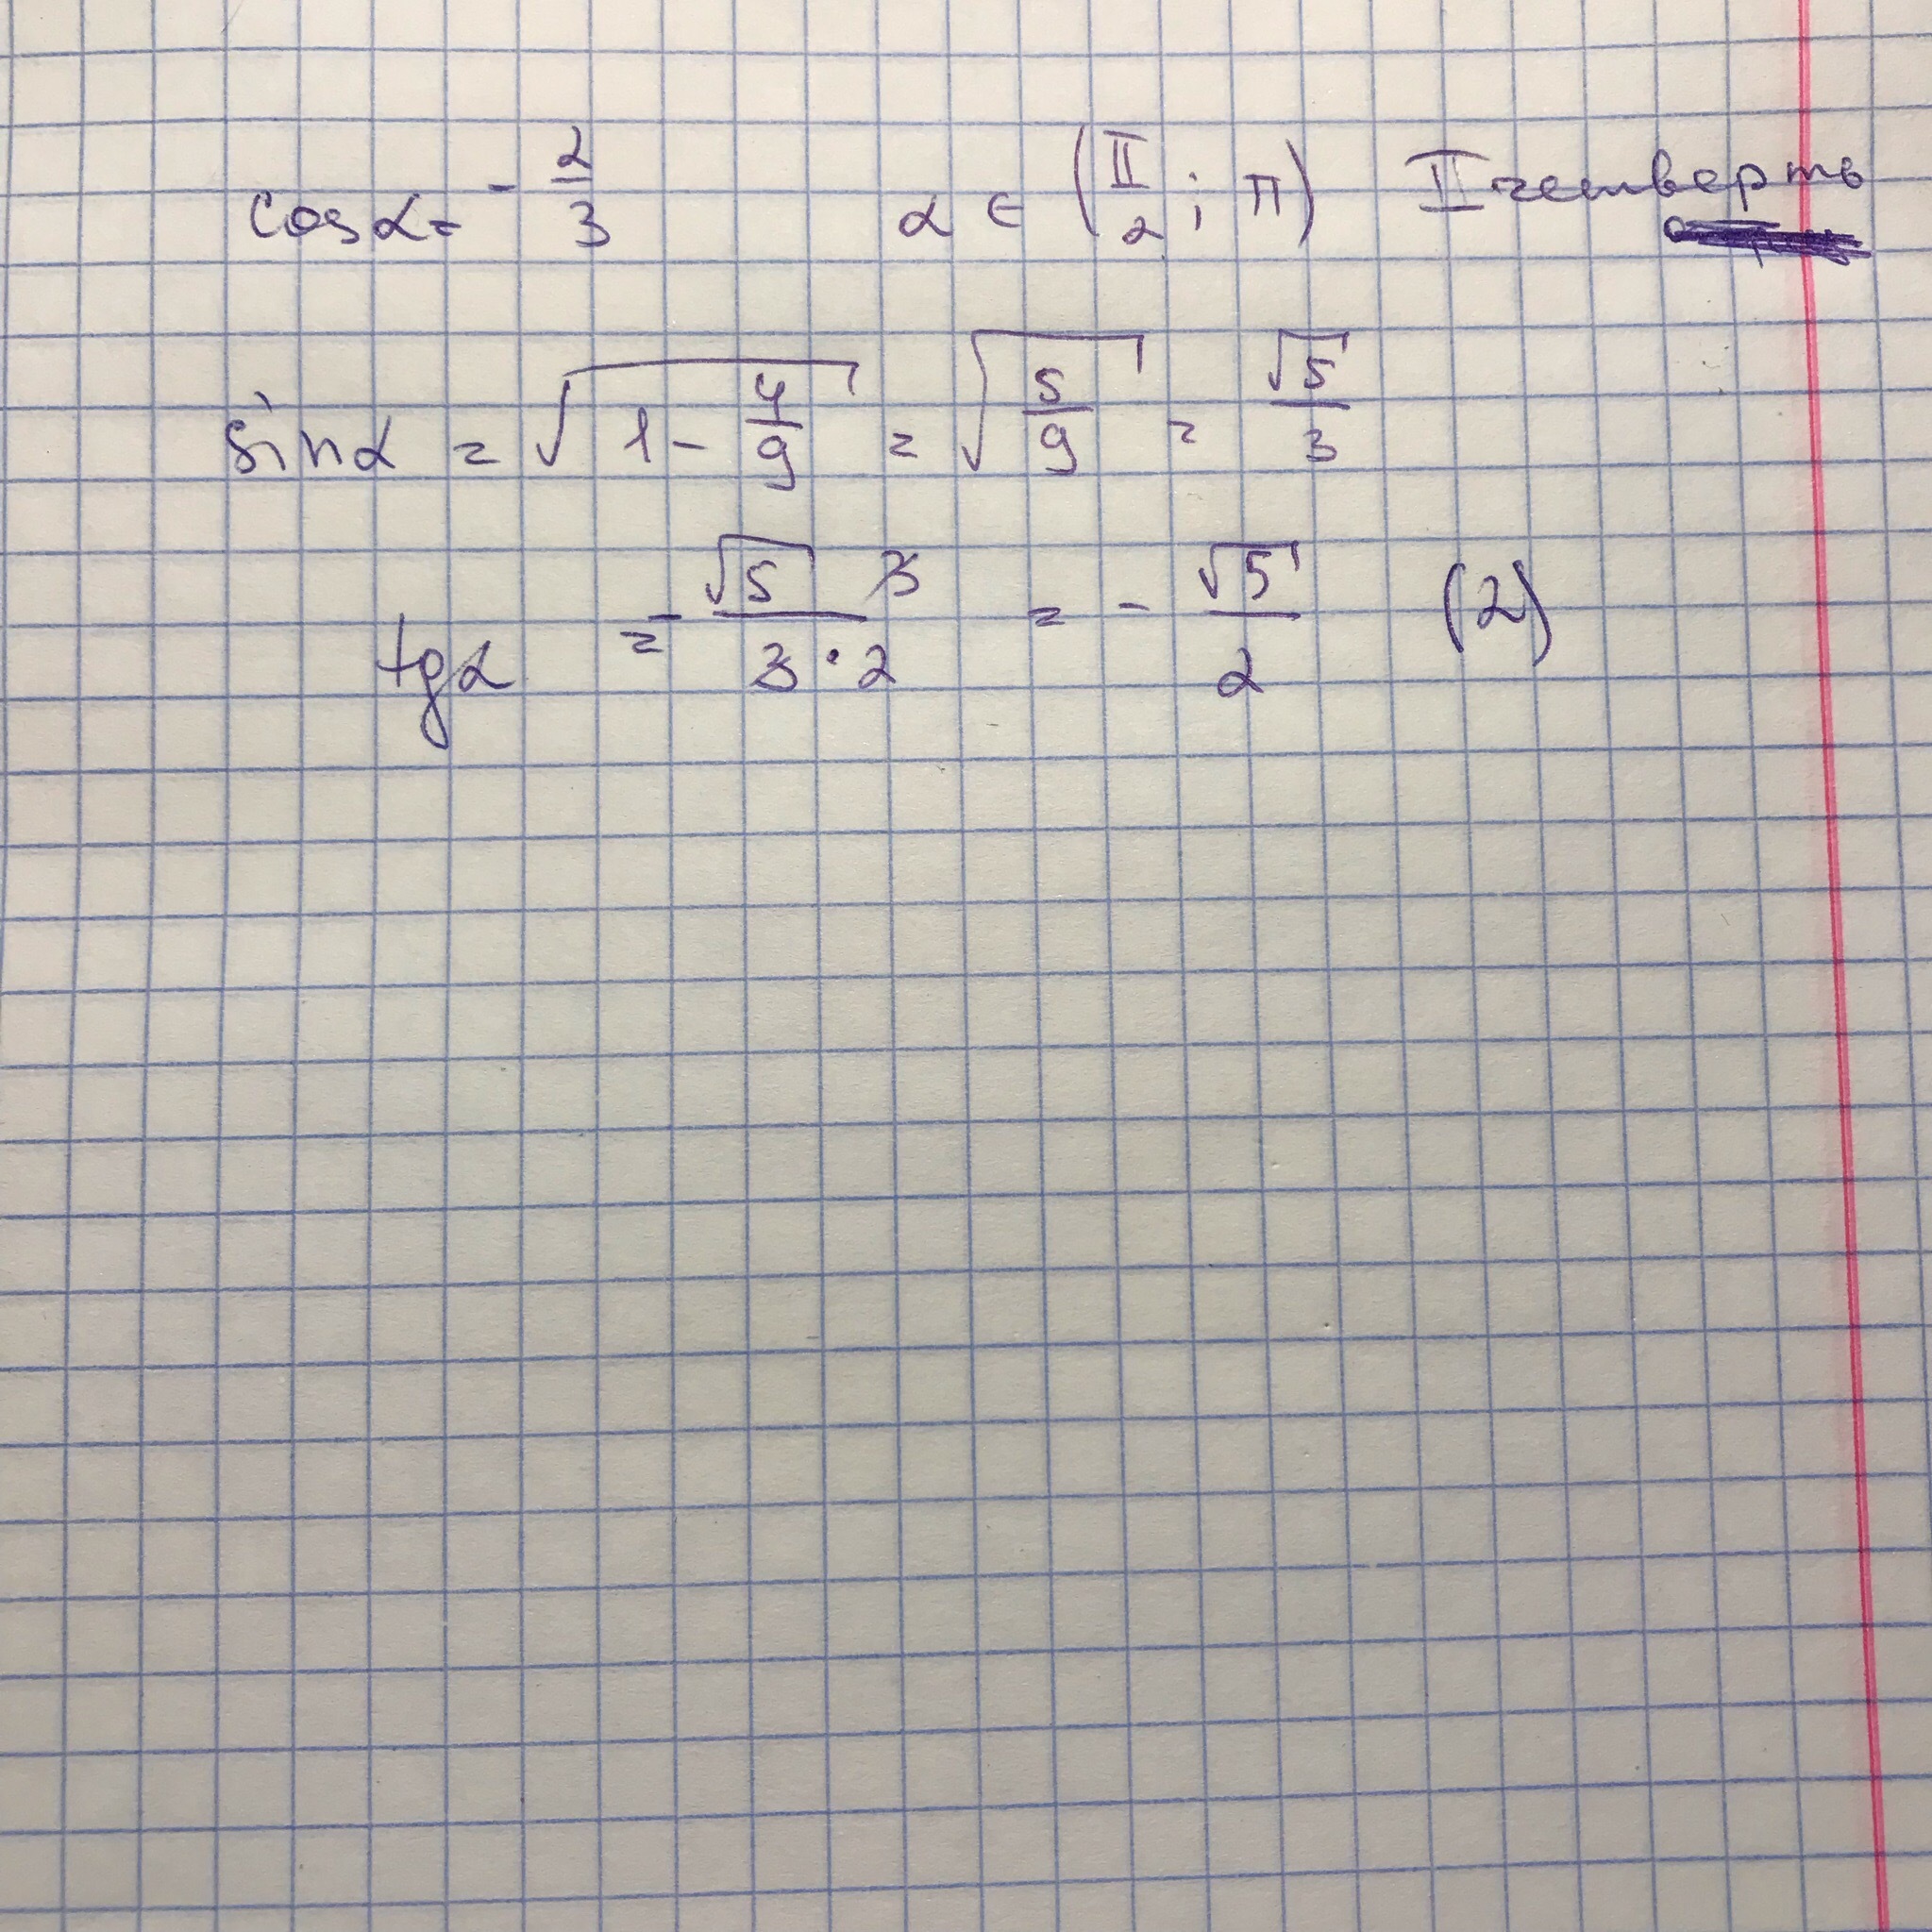 cosα = - 2/3 α ∈ (π/2 ; π) II четверть
sinα = √(1 - 4/9) = √(5/9) = √5/3
tgα = - √5 3/(3 · 2) = - √5/2 (2)